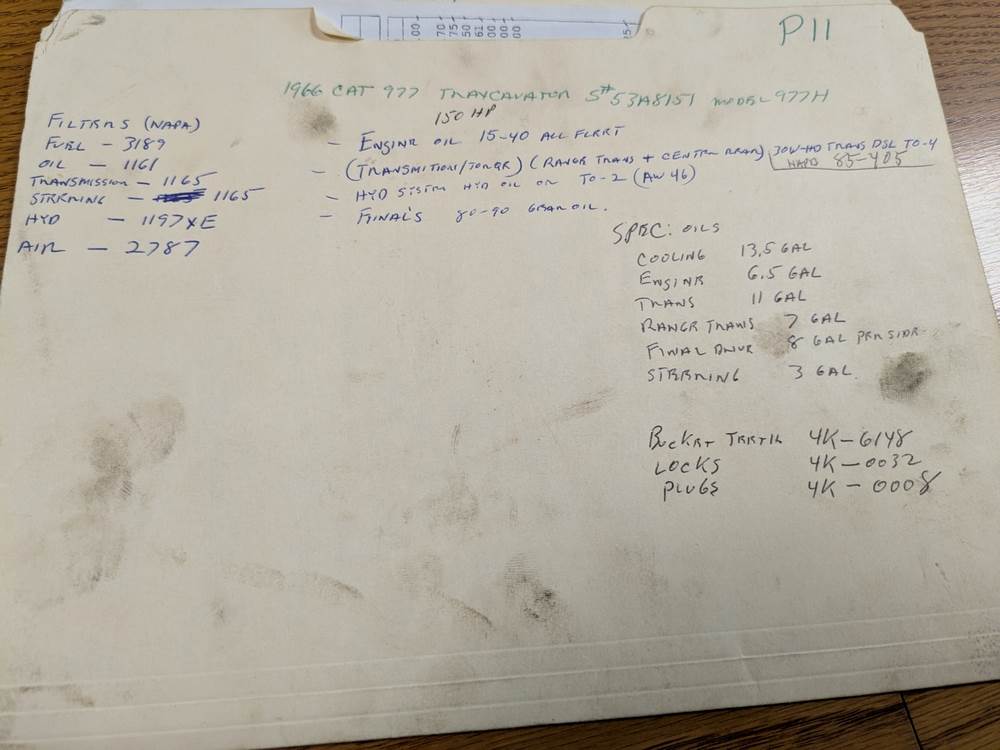 P11
1966 CAT 977 TRAXCAVATOR S# 53A8151 MODEL 977H
150 HP
FILTERS (NAPA)
FUEL - 3189
OIL - 1161
TRANSMISSION - 1165
STEERING - 1165
HYD - 1197XE
AIR - 2787
- ENGINE OIL 15-40 ALL FLEET
- (TRANSMITION/TORQE) (RANGE TRANS + CENTER REAR) 30W-HD TRANS DSL TO-4
NAPA 85-405
- HYD SISTEM HYD OIL OR TO-2 (AW 46)
- FINAL'S 80-90 GEAR OIL.
SPEC: OILS
COOLING 13,5 GAL
ENGINE 6.5 GAL
TRANS 11 GAL
RANGE TRANS 7 GAL
FINAL DRIVE 8 GAL PER SIDE
STEERING 3 GAL
BUCKET TEETH 4K-6148
LOCKS 4K-0032
PLUGS 4K-0008
.00
70
75
50
61
00
00
00